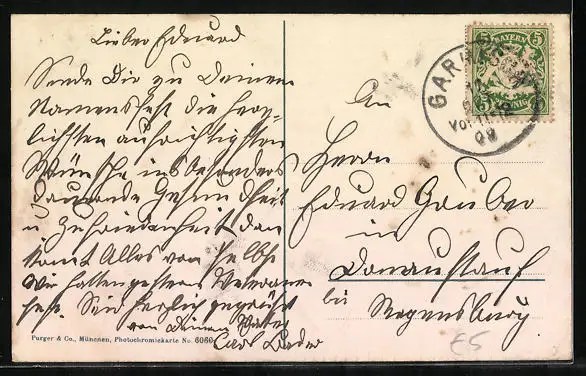 Lieber Eduard
Sende Dir zu Deinem
Namensfest die herz-
lichsten aufrichtigsten
Wünsche insbesonders
dauernde Gesundheit
u. Zufriedenheit dan
komt Alles von selbst
Wir hatten gestern Veteranen
fest. Seid herzlich gegrüßt
von Deinem Vater
An
Herrn
Eduard Gruber
in
Donaustauf
bei
Regensburg
BAYERN
5 5
5 PFENNIG 5
GARMISCH
Vor. 11-12
09
Purger & Co., München, Photochromiekarte No. 6060